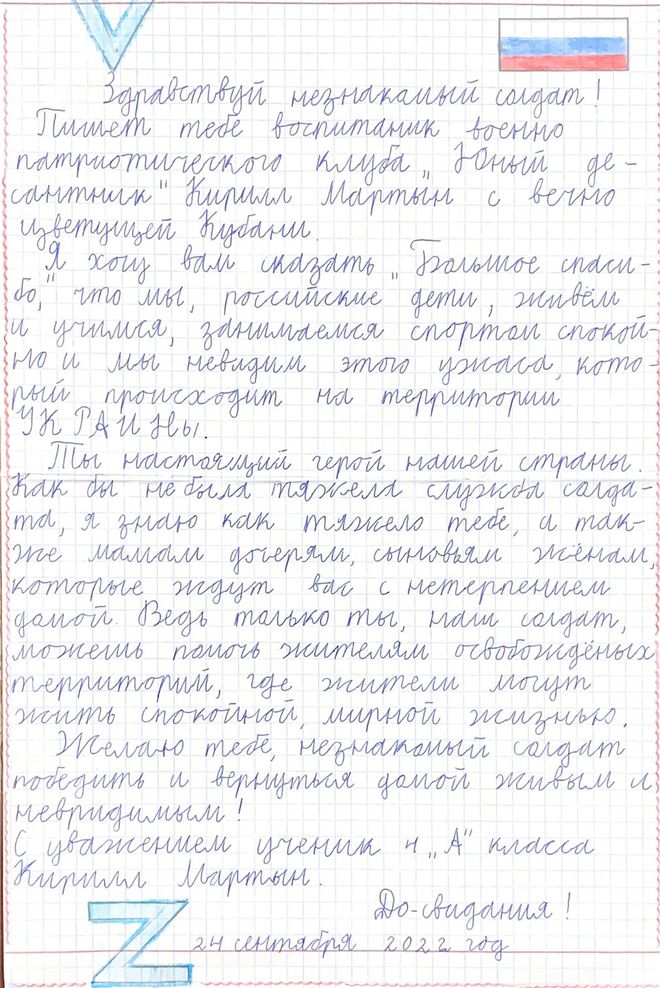 V
Здравствуй незнакамый солдат!
Пишет тебе воспитаник военно
патриотического клуба „Юный де-
сантник" Кирилл Мартын с вечно
цветущей Кубани.
Я хочу вам сказать „Большое спаси-
бо," что мы, российские дети, живём
и учимся, занимаемся спортом спокой-
но и мы невидим этого ужаса, кото-
рый происходит на территории
УКРАИНы.
Ты настоящий герой нашей страны.
Как бы не была тяжела служба солда-
та, я знаю как тяжело тебе, а так-
же мамам дочерям, сыновьям жёнам,
которые ждут вас с нетерпением
домой. Ведь только ты, наш солдат,
можешь помочь жителям освобождёных
территорий, где жители могут
жить спокойной, мирной жизнью.
Желаю тебе, незнакомый солдат
победить и вернуться домой живым и
невридимым!
С уважением ученик 4 „А" класса
Кирилл Мартын.
До-свидания!
Z
24 сентября 2022 год